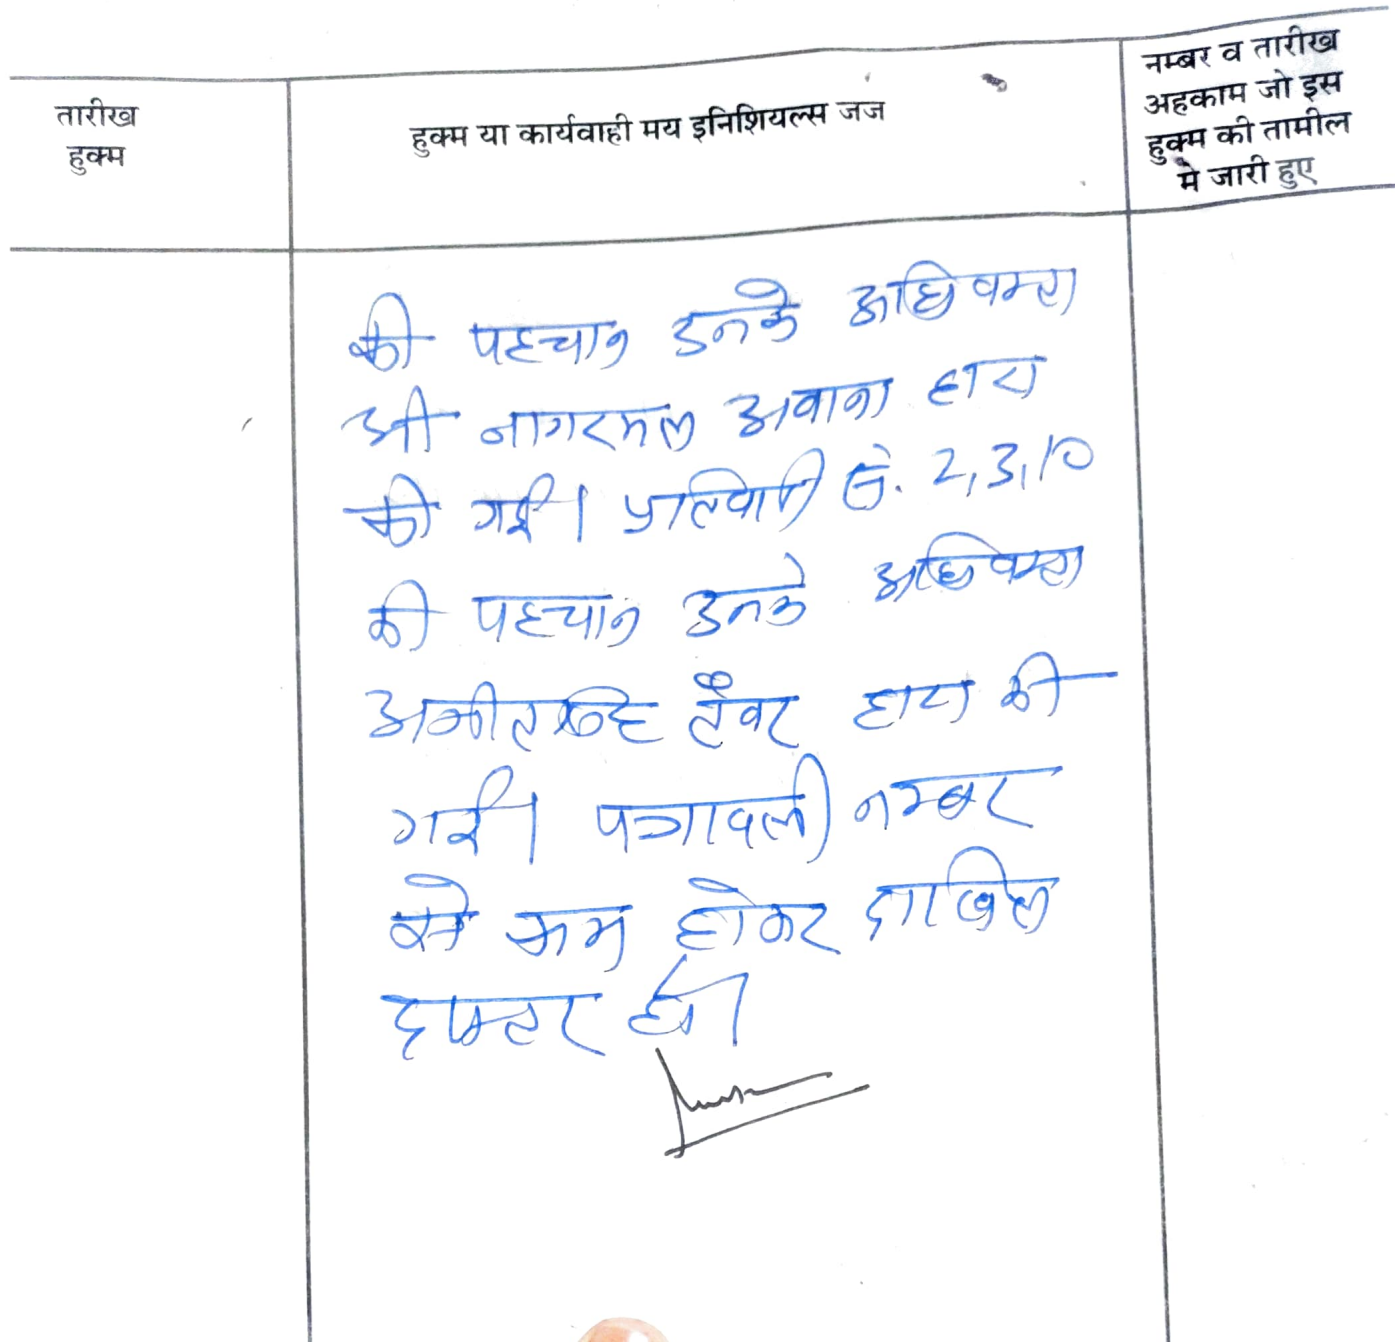 तारीख
हुक्म
हुक्म या कार्यवाही मय इनिशियल्स जज
नम्बर व तारीख
अहकाम जो इस
हुक्म की तामील
मे जारी हुए
की पहचान उनके अधिवक्ता
श्री नागरमल अवाना द्वारा
की गई। प्रतिवादी सं. 2,3,10
की पहचान उनके अधिवक्ता
अजीतसिंह तँवर द्वारा की
गई। पत्रावली नम्बर
से कम होकर दाखिल
दफ्तर हो।